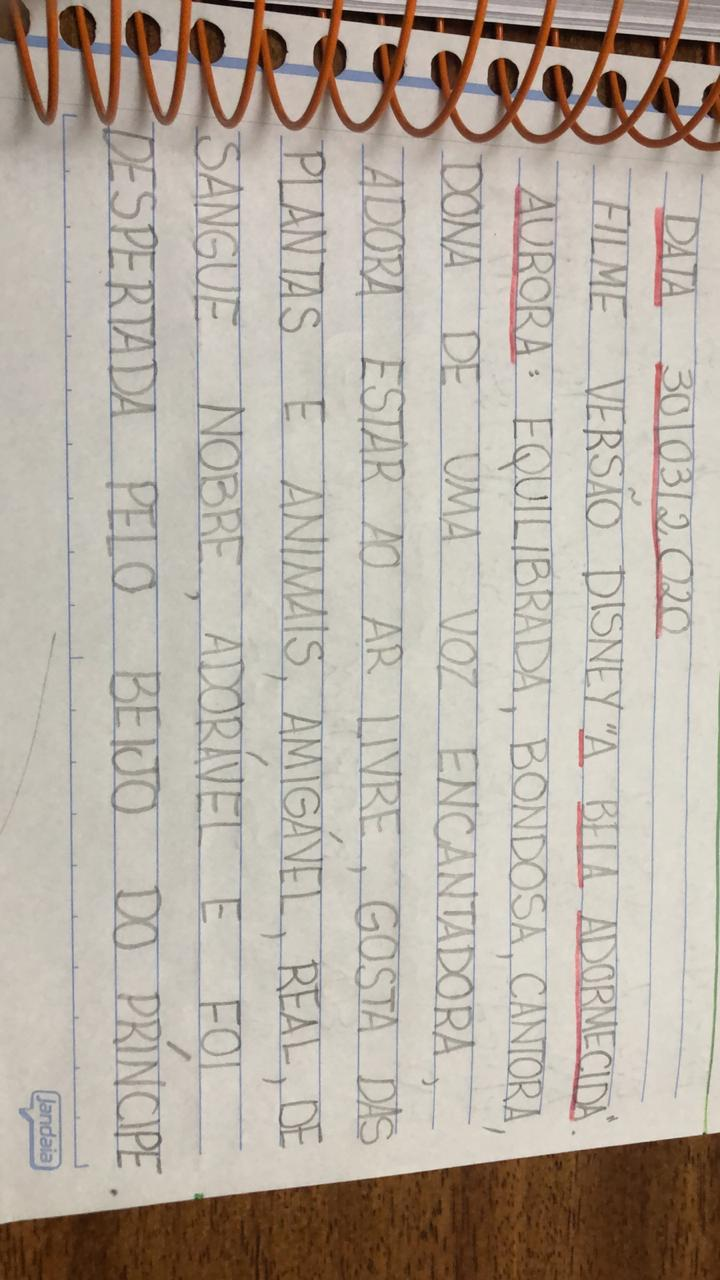 DATA 30/03/2020
FILME VERSÃO DISNEY "A BELA ADORMECIDA".
AURORA: EQUILIBRADA, BONDOSA, CANTORA,
DONA DE UMA VOZ ENCANTADORA,
ADORA ESTAR AO AR LIVRE, GOSTA DAS
PLANTAS E ANIMAIS, AMIGÁVEL, REAL, DE
SANGUE NOBRE, ADORÁVEL E FOI
DESPERTADA PELO BEIJO DO PRÍNCIPE.
Jandaia